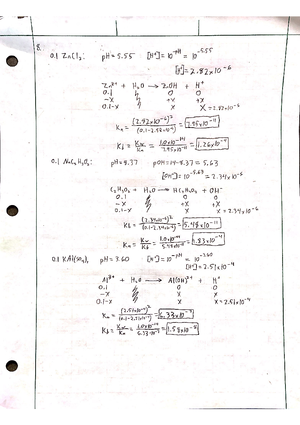 8.
0.1 ZnCl₂: pH=5.55 [H⁺]=10^-pH = 10^-5.55
[H⁺]=2.82x10⁻⁶
Zn²⁺ + H₂O → ZnOH + H⁺
0.1 0 0
-x +x +x
0.1-x x x = 2.82x10⁻⁶
Ka = (2.82x10⁻⁶)² / (0.1-2.82x10⁻⁶) = 7.95x10⁻¹¹
Kb = Kw/Ka = 1.0x10⁻¹⁴ / 7.95x10⁻¹¹ = 1.26x10⁻⁴
0.1 NaC₂H₃O₂: pH=8.37 pOH=14-8.37 = 5.63
[OH⁻]= 10^-5.63 = 2.34x10⁻⁶
C₂H₃O₂ + H₂O → HC₂H₃O₂ + OH⁻
0.1 0 0
-x +x +x
0.1-x x x = 2.34x10⁻⁶
Kb = (2.34x10⁻⁶)² / (0.1-2.34x10⁻⁶) = 5.48x10⁻¹¹
Ka = Kw/Kb = 1.0x10⁻¹⁴ / 5.48x10⁻¹¹ = 1.83x10⁻⁴
0.1 KAl(SO₄)₂ pH=3.60 [H⁺]=10^-pH = 10^-3.60
[H⁺]=2.51x10⁻⁴
Al³⁺ + H₂O → Al(OH)²⁺ + H⁺
0.1 0 0
-x x x
0.1-x x x x=2.51x10⁻⁴
Ka = (2.51x10⁻⁴)² / (0.1-2.51x10⁻⁴) = 6.33x10⁻⁷
Kb = Kw/Ka = 1.0x10⁻¹⁴ / 6.33x10⁻⁷ = 1.58x10⁻⁸